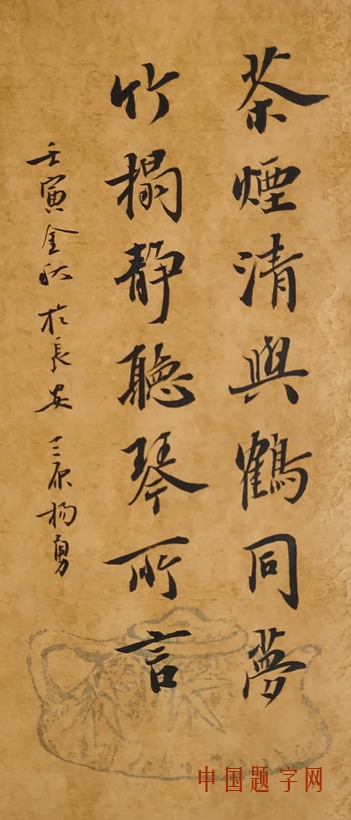 茶煙清與鶴同夢
竹榻靜聽琴所言
壬寅金秋於長安三原楊勇
中国题字网